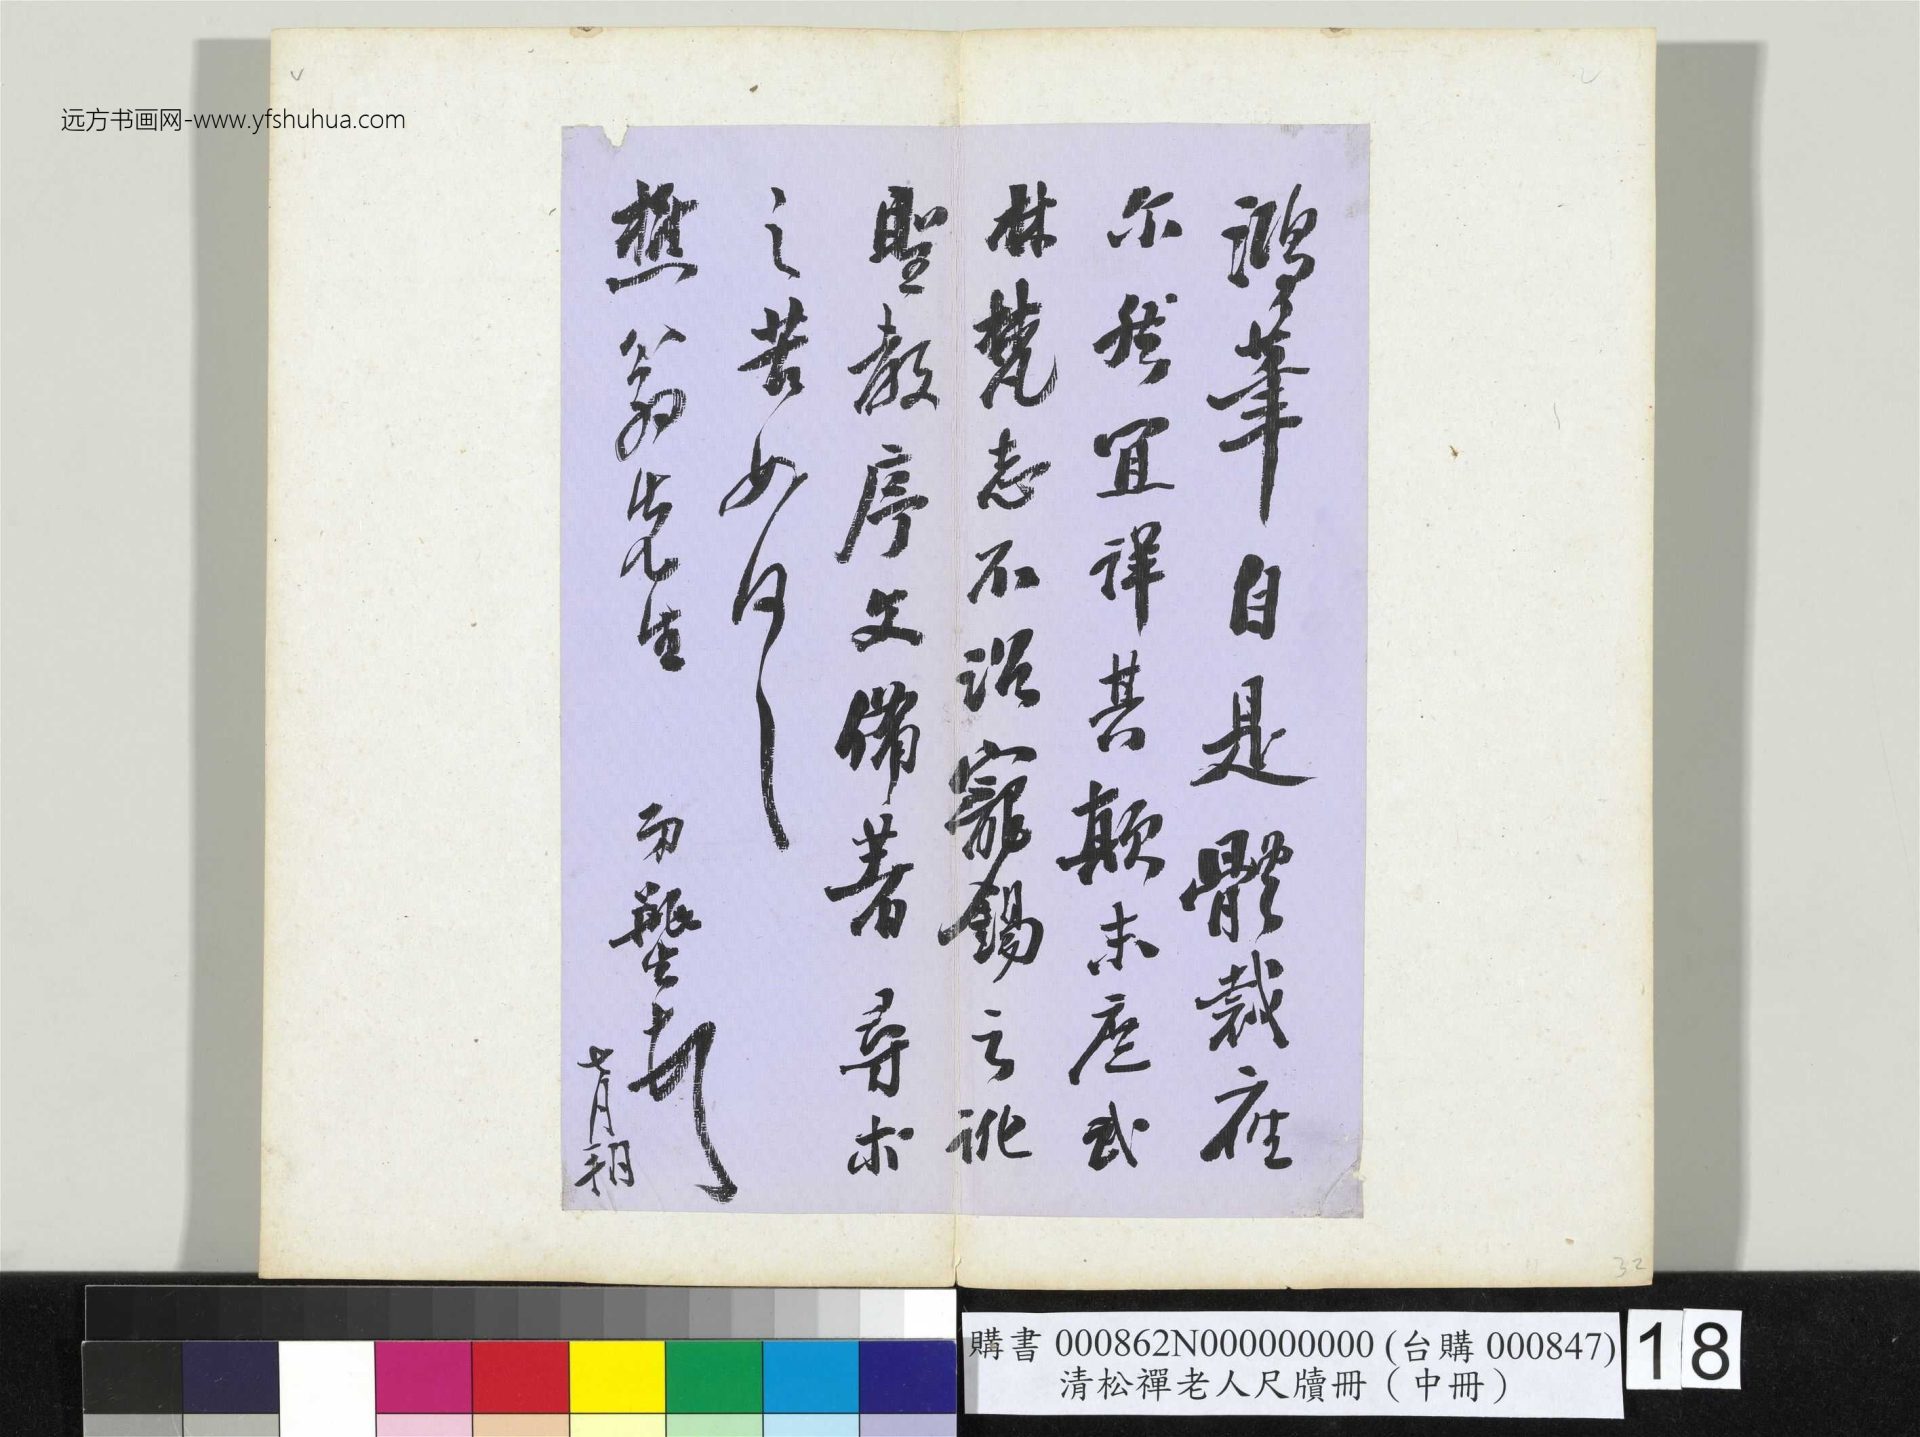 远方书画网-www.yfshuhua.com
鴻筆自是體裁應
尔然宜詳其顛末庶武
林梵志不詒寵錫之
聖教序文備著尋
之苦如何
樵翁先生
缾生頓首
七月朔
購書 000862N000000000 (台購 000847)
清松禪老人尺牘冊（中冊）
18
32